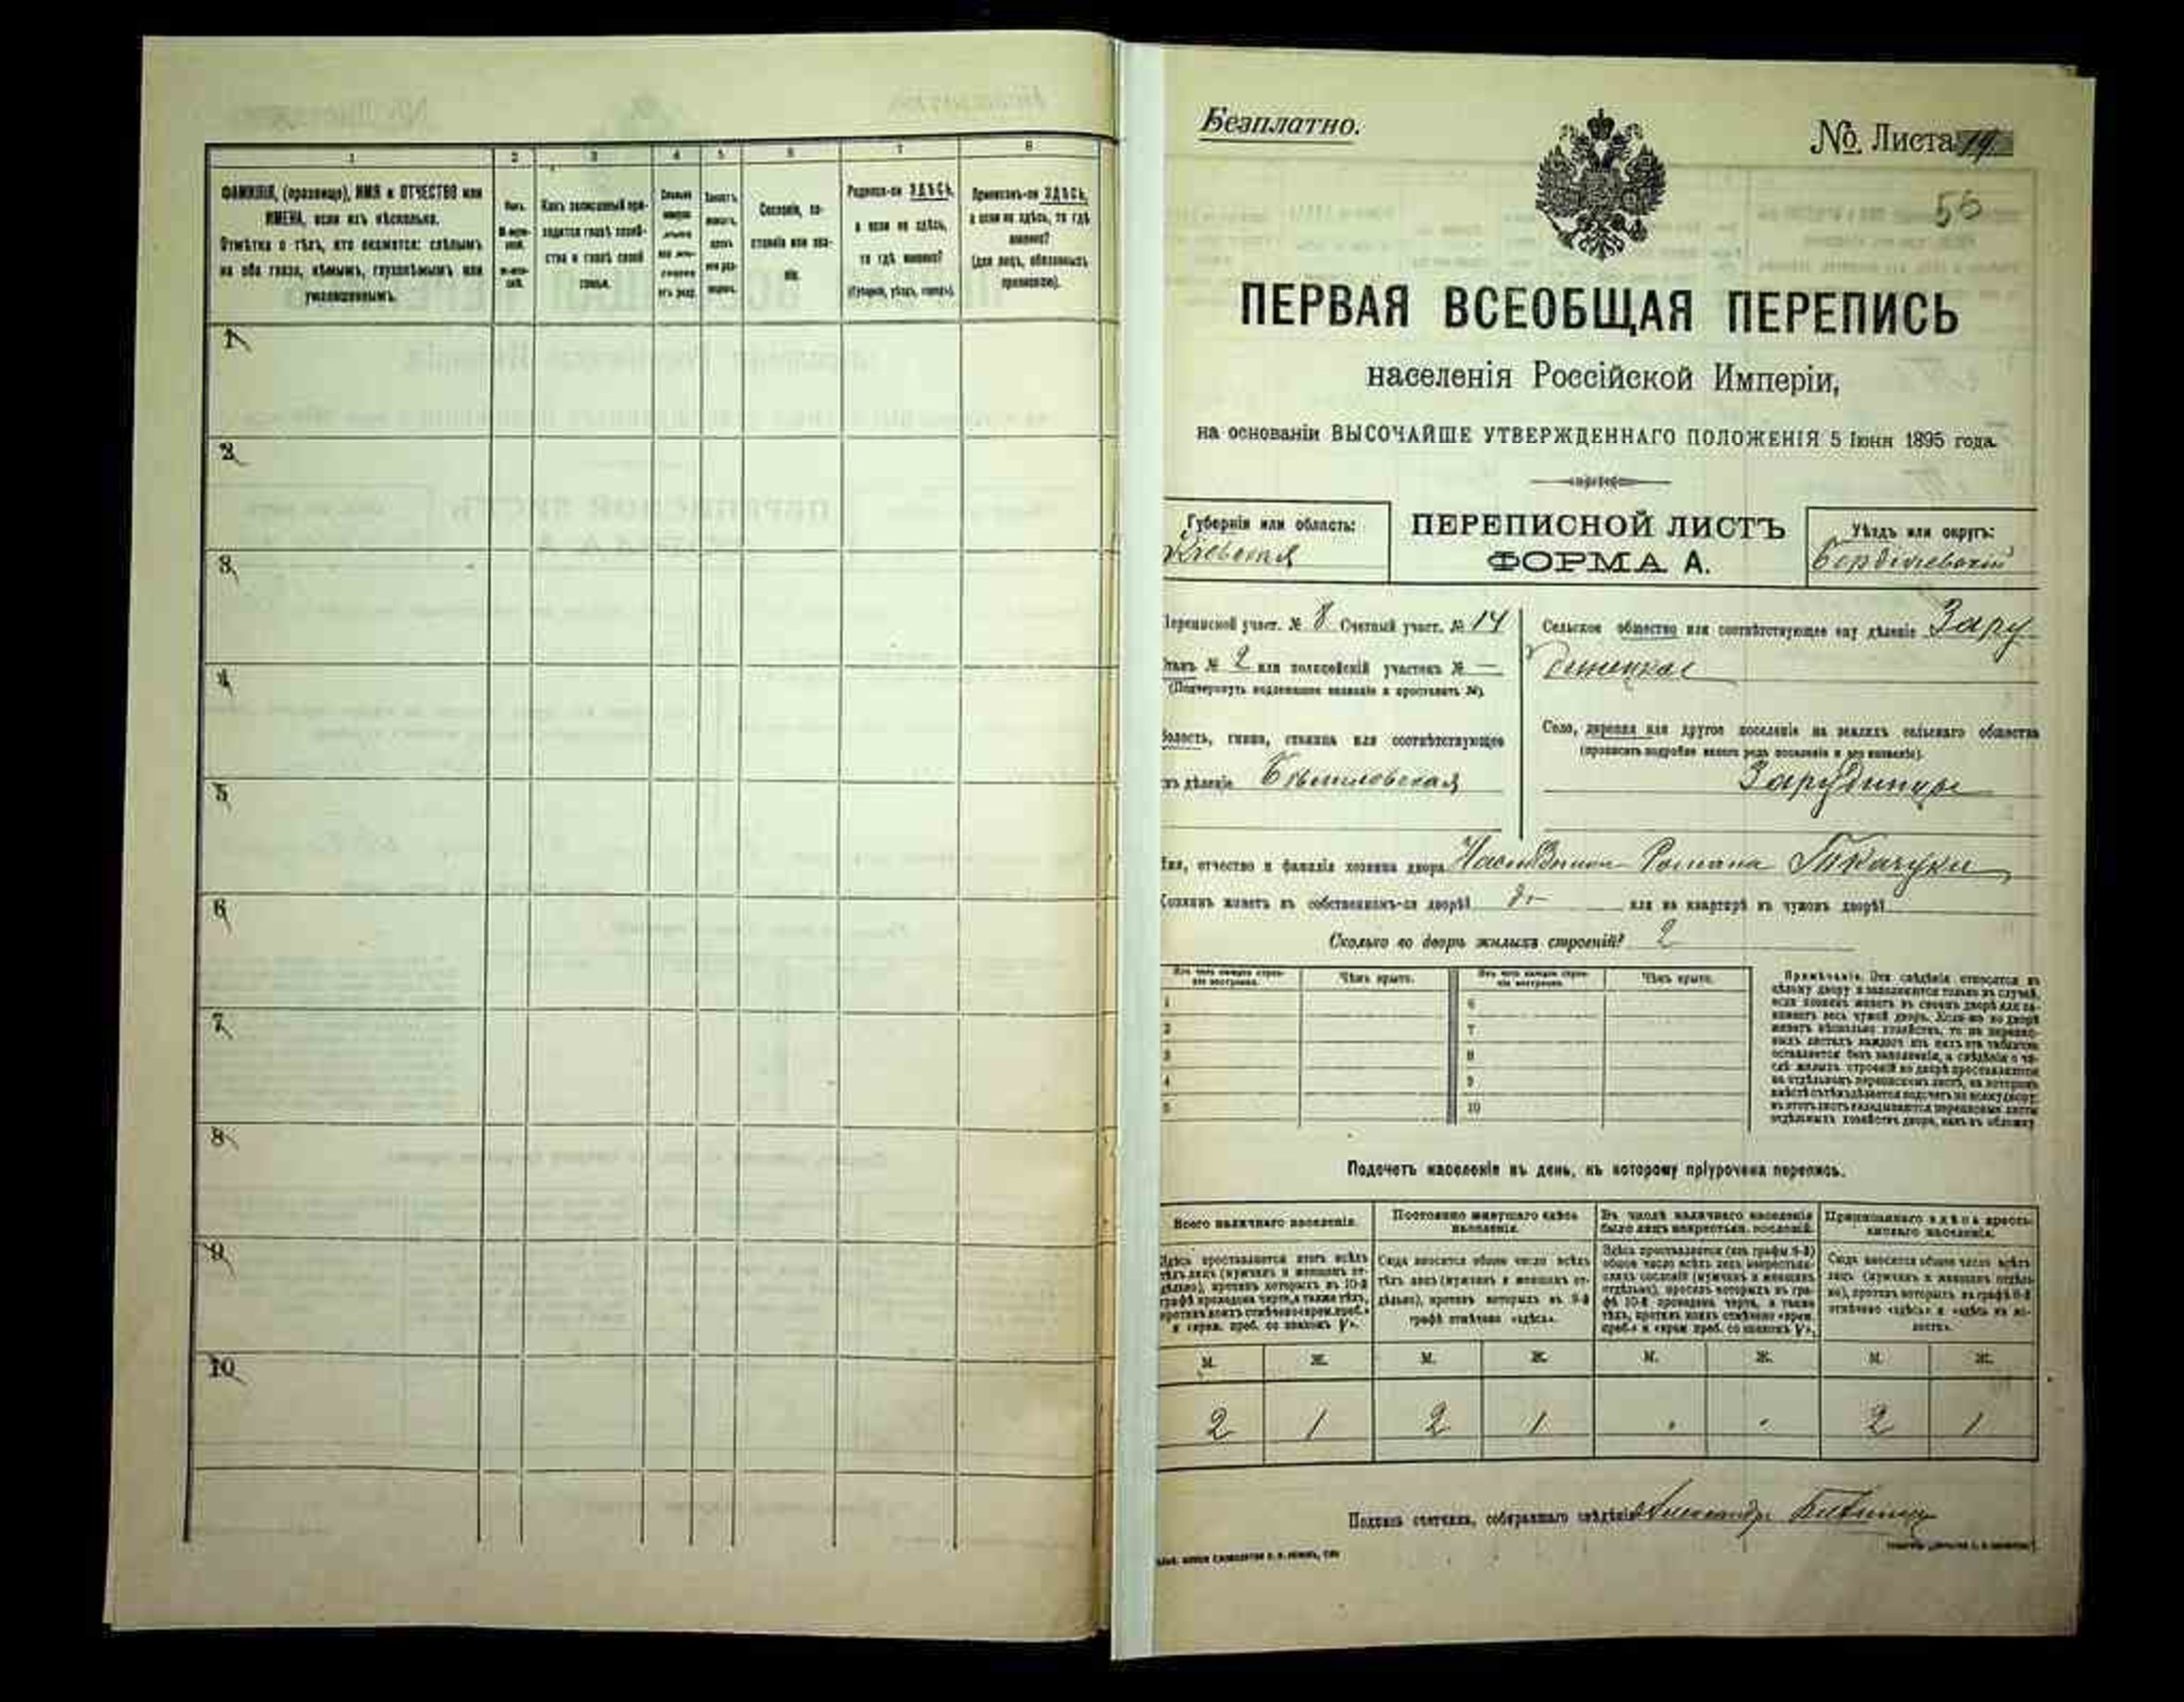 1 2 3 4 5 6 7 8
ФАМИЛІЯ, (прозвище), ИМЯ и ОТЧЕСТВО или
ИМЕНА, если ихъ нѣсколько.
Отмѣтка о тѣхъ, кто окажется: слѣпымъ
на оба глаза, нѣмымъ, глухонѣмымъ или
умалишеннымъ.
Какъ записанный при-
ходится главѣ хозяй-
ства и главѣ своей
семьи.
Сословіе, со-
стояніе или зва-
ніе.
Родился-ли ЗДѢСЬ,
а если не здѣсь,
то гдѣ именно?
(Губернія, уѣздъ, городъ).
Приписанъ-ли ЗДѢСЬ,
а если не здѣсь, то гдѣ
именно?
(для лицъ, обязанныхъ
припискою).
1
2
3
4
5
6
7
8
9
10
Безплатно.
№ Листа 19
56
ПЕРВАЯ ВСЕОБЩАЯ ПЕРЕПИСЬ
населенія Россійской Имперіи,
на основаніи ВЫСОЧАЙШЕ УТВЕРЖДЕННАГО ПОЛОЖЕНІЯ 5 Іюня 1895 года.
Губернія или область:
Кіевская
ПЕРЕПИСНОЙ ЛИСТЪ
ФОРМА А.
Уѣздъ или округъ:
Бердичевскій
Переписной участ. № 8 Счетный участ. № 14
Станъ № 2 или полицейскій участокъ № —
(Подчеркнуть подлежащее названіе и проставить №).
Волость, гмина, станица или соотвѣтствующее
ихъ дѣленіе
Сельское общество или соотвѣтствующее ему дѣленіе Зару
динецкое
Село, деревня или другое поселеніе на земляхъ сельскаго общества
(прописать подробно какого рода поселеніе и его названіе).
Зарудинцы
Имя, отчество и фамилія хозяина двора Романа Ткачука
Хозяинъ живетъ въ собственномъ-ли дворѣ? или на квартирѣ въ чужомъ дворѣ?
Сколько во дворѣ жилыхъ строеній? 2
Изъ чего каждое строе-
ніе построено.
Чѣмъ крыто.
Изъ чего каждое строе-
ніе построено.
Чѣмъ крыто.
1 6
2 7
3 8
4 9
5 10
Примѣчаніе. Эти свѣдѣнія относятся къ
цѣлому двору и заполняются только въ случаѣ,
если хозяинъ живетъ въ своемъ дворѣ или за-
нимаетъ весь чужой дворъ. Если-же во дворѣ
живетъ нѣсколько хозяйствъ, то на перепис-
ныхъ листахъ каждаго изъ нихъ эта табличка
оставляется безъ заполненія, а свѣдѣнія о чи-
слѣ жилыхъ строеній во дворѣ проставляются
на отдѣльномъ переписномъ листѣ, на которомъ
вмѣстѣ съ тѣмъ дѣлается подсчетъ по всему двору;
въ этотъ листъ вкладываются переписные листы
отдѣльныхъ хозяйствъ двора, какъ въ обложку.
Подсчетъ населенія въ день, къ которому пріурочена перепись.
Всего наличнаго населенія.
Здѣсь проставляется итогъ всѣхъ
тѣхъ лицъ (мужчинъ и женщинъ от-
дѣльно), противъ которыхъ въ 10-й
графѣ проведена черта, а также тѣхъ,
противъ коихъ отмѣчено «врем. преб.»
и «врем. преб. со знакомъ V».
Постоянно живущаго здѣсь
населенія.
Сюда вносится общее число всѣхъ
тѣхъ лицъ (мужчинъ и женщинъ от-
дѣльно), противъ которыхъ въ 9-й
графѣ отмѣчено «здѣсь».
Въ числѣ наличнаго населенія
было лицъ некрестьян. сословій.
Здѣсь проставляется (изъ графы 6-й)
общее число всѣхъ лицъ некрестьян-
скихъ сословій (мужчинъ и женщинъ
отдѣльно), противъ которыхъ въ гра-
фѣ 10-й проведена черта, а также
тѣхъ, противъ коихъ отмѣчено «врем.
преб.» и «врем. преб. со знакомъ V».
Приписаннаго здѣсь кресть-
янскаго населенія.
Сюда вносится общее число всѣхъ
лицъ (мужчинъ и женщинъ отдѣль-
но), противъ которыхъ въ графѣ 8-й
отмѣчено «здѣсь» и «здѣсь въ во-
лости».
М. Ж. М. Ж. М. Ж. М. Ж.
2 1 2 1 2 1
Подпись счетчика, собиравшаго свѣдѣнія Александр